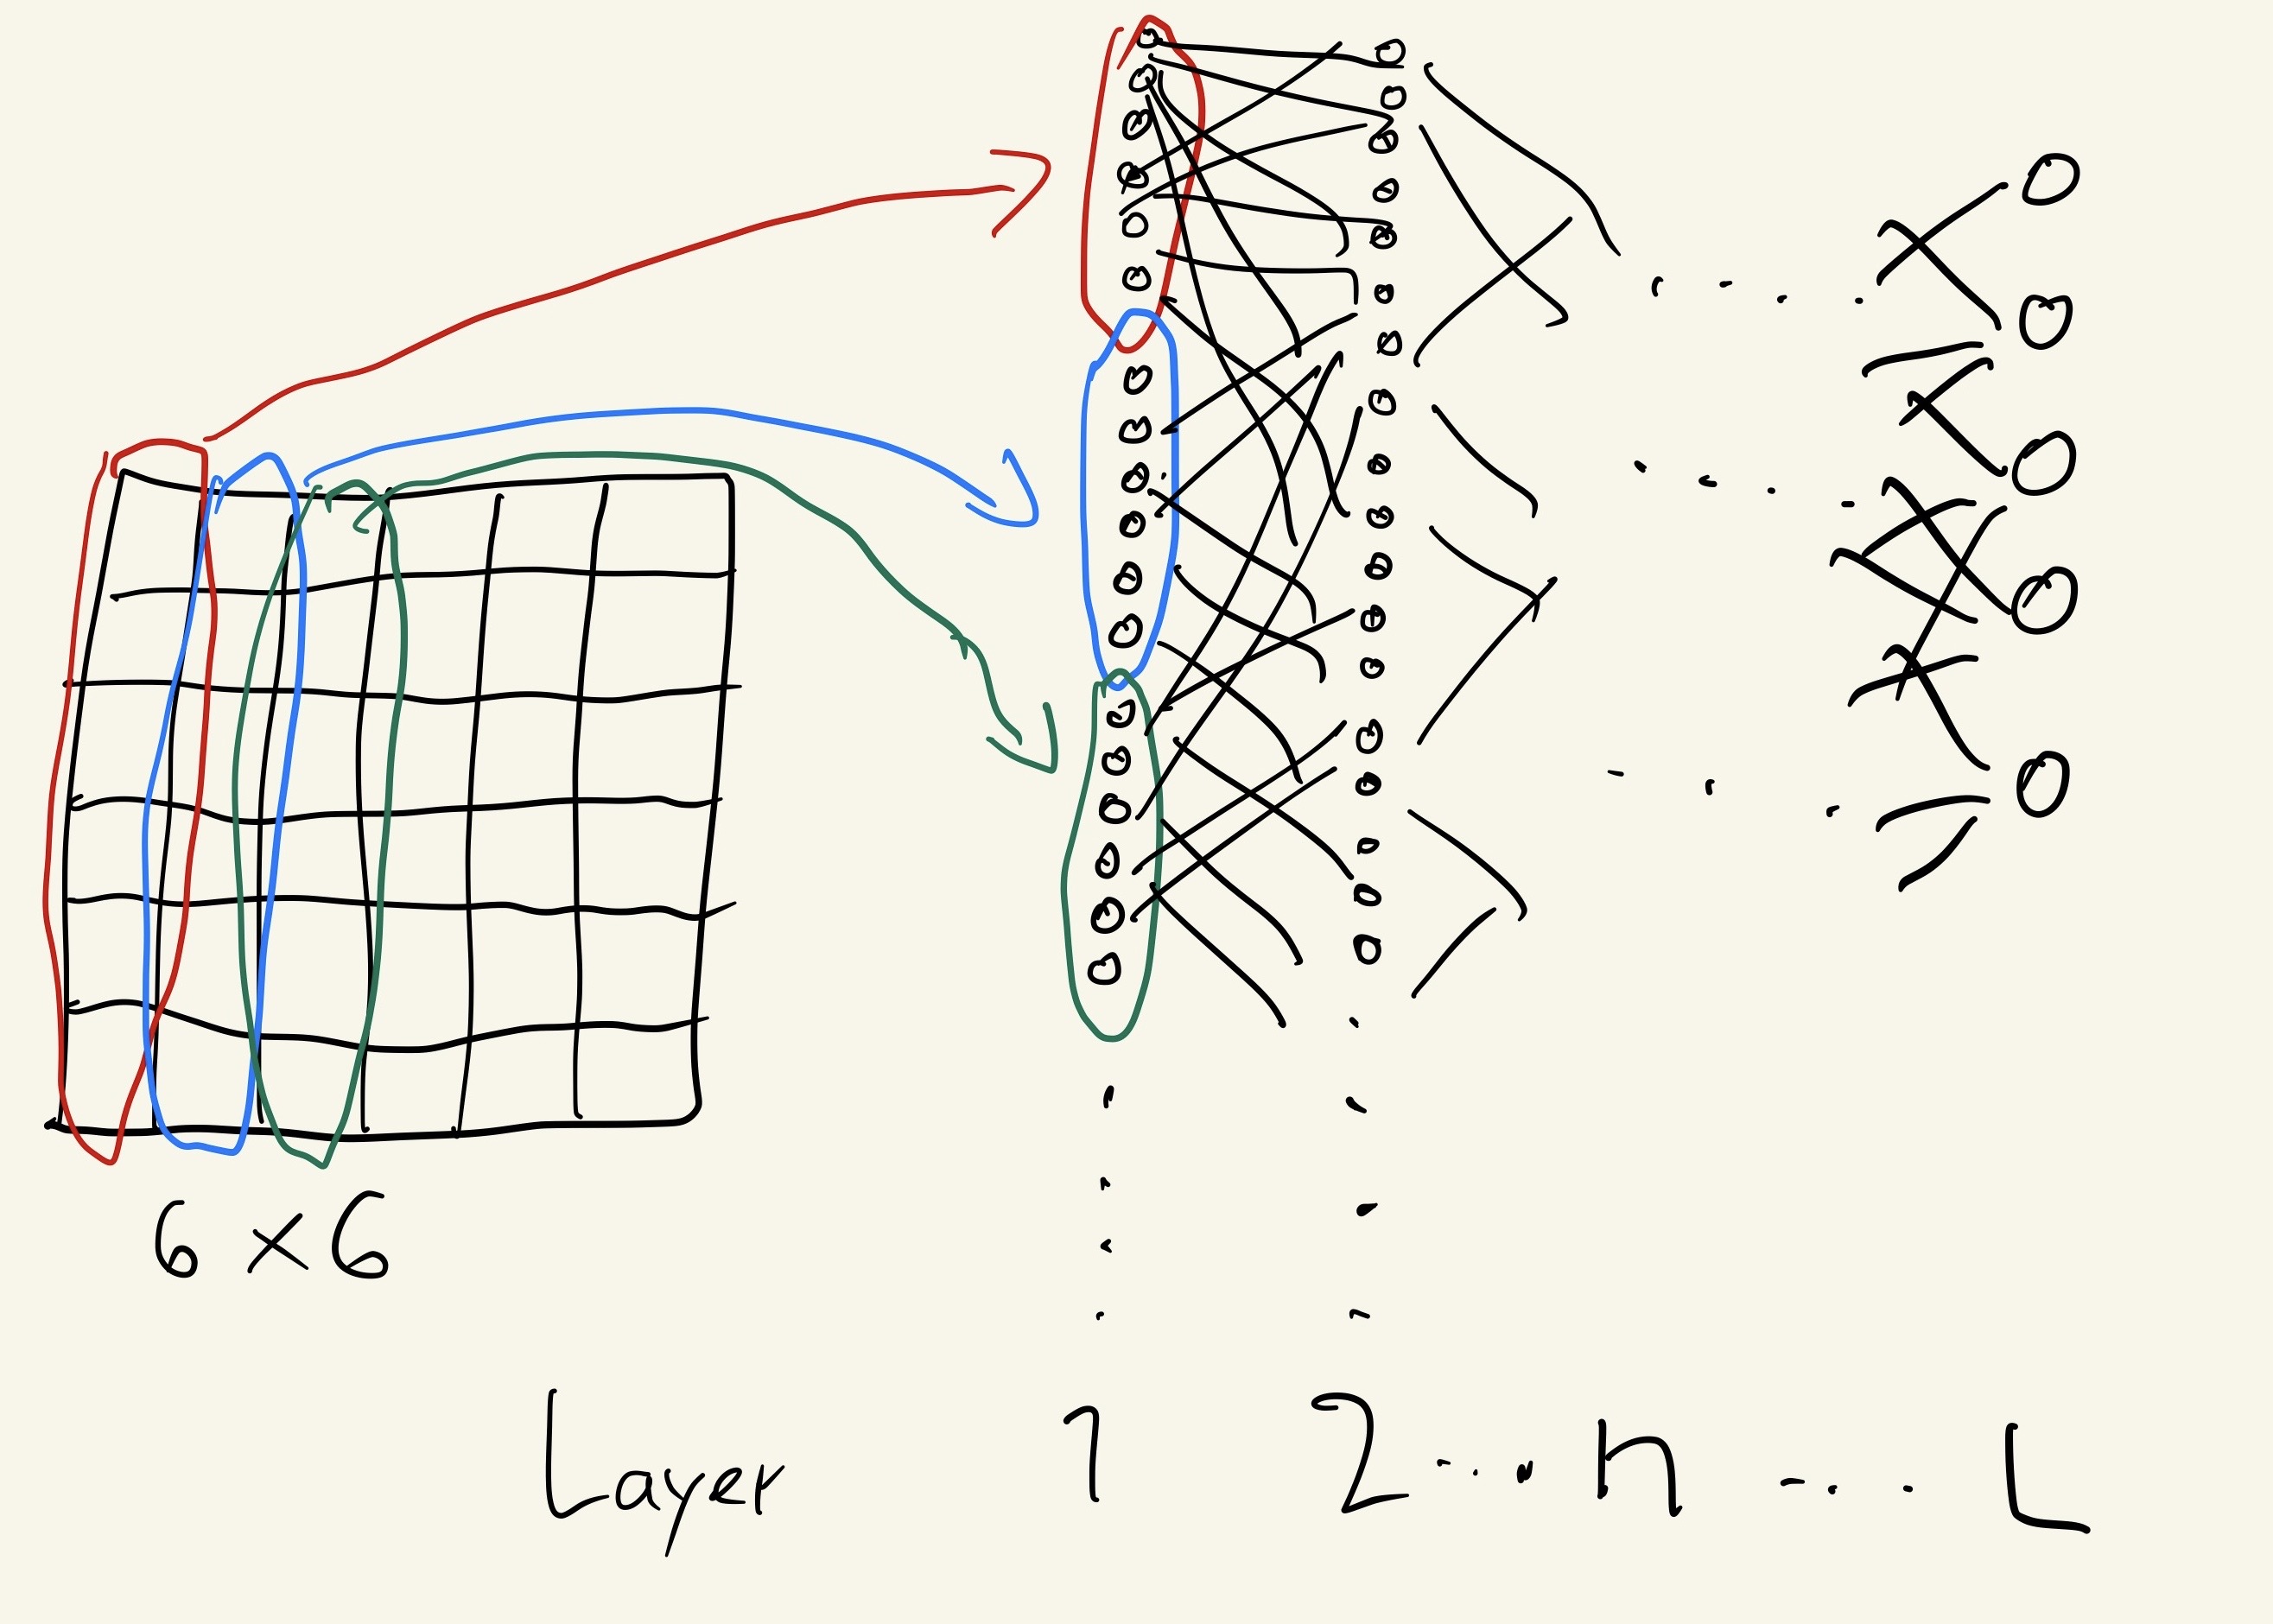 6 × 6
Layer 1 2 ... n ... L